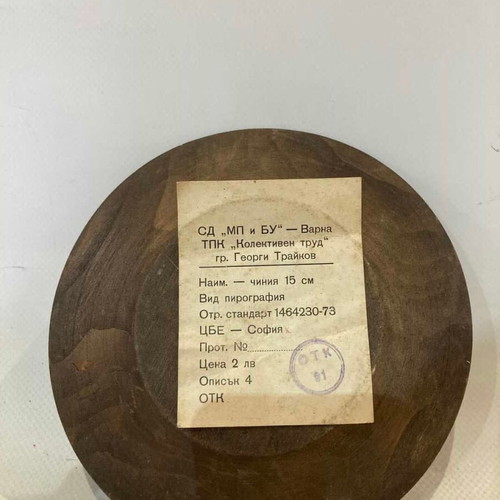 СД „МП и БУ“ — Варна
ТПК „Колективен труд“
гр. Георги Трайков
Наим. — чиния 15 см
Вид пирография
Отр. стандарт 1464230-73
ЦБЕ — София
Прот. №
Цена 2 лв
Описък 4
ОТК
ОТК